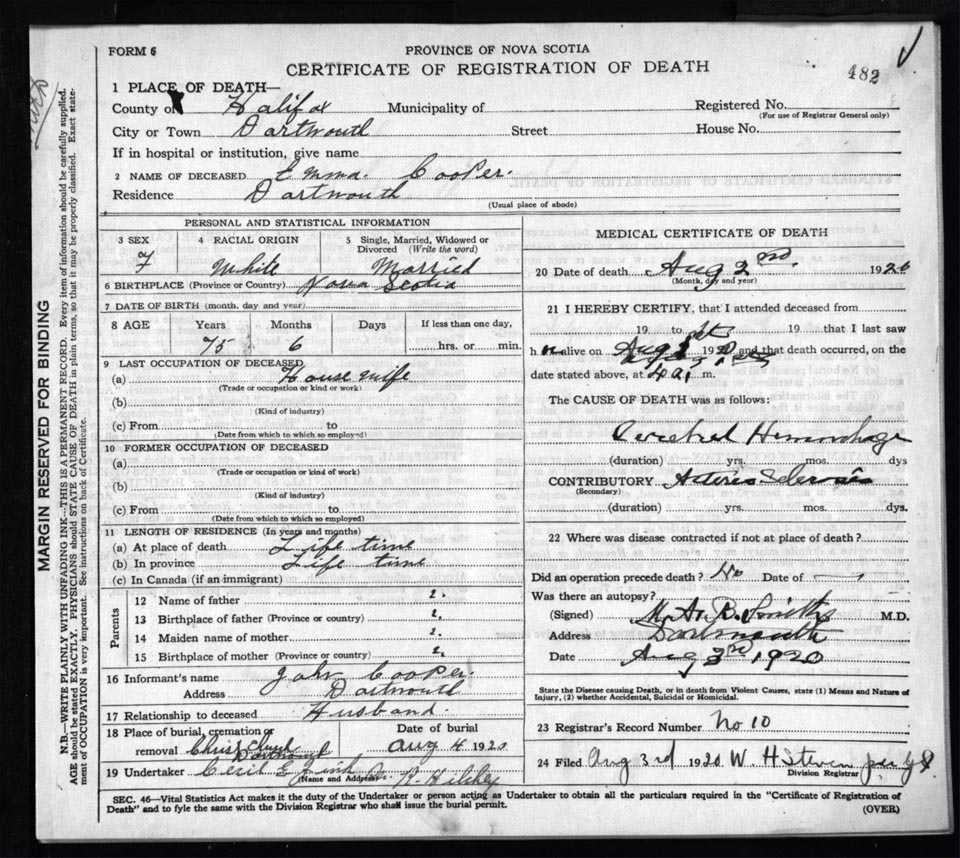 FORM 6
PROVINCE OF NOVA SCOTIA
CERTIFICATE OF REGISTRATION OF DEATH
482
1 PLACE OF DEATH—
County of Halifax Municipality of Registered No.
(For use of Registrar General only)
City or Town Dartmouth Street House No.
If in hospital or institution, give name
2 NAME OF DECEASED Emma. Cooper.
Residence Dartmouth
(Usual place of abode)
PERSONAL AND STATISTICAL INFORMATION
3 SEX 4 RACIAL ORIGIN 5 Single, Married, Widowed or Divorced (Write the word)
F White Married
6 BIRTHPLACE (Province or Country) Nova Scotia
7 DATE OF BIRTH (month, day and year)
8 AGE Years Months Days If less than one day,
75 6 hrs. or min.
9 LAST OCCUPATION OF DECEASED
(a) House wife
(Trade or occupation or kind or work)
(b)
(Kind of industry)
(c) From to
(Date from which to which so employed)
10 FORMER OCCUPATION OF DECEASED
(a)
(Trade or occupation or kind of work)
(b)
(Kind of industry)
(c) From to
(Date from which to which so employed)
11 LENGTH OF RESIDENCE (In years and months)
(a) At place of death Life time
(b) In province Life time
(c) In Canada (if an immigrant)
Parents
12 Name of father
13 Birthplace of father (Province or country)
14 Maiden name of mother
15 Birthplace of mother (Province or country)
16 Informant's name John Cooper.
Address Dartmouth
17 Relationship to deceased Husband.
18 Place of burial, cremation or removal Christ Church Dartmouth
Date of burial
Aug 4 1920
19 Undertaker Cecil E.
(Name and Address)
MEDICAL CERTIFICATE OF DEATH
20 Date of death Aug 2nd. 1920
(Month, day and year)
21 I HEREBY CERTIFY, that I attended deceased from
19 to 19 that I last saw
h alive on Aug 1st 1920 and that death occurred, on the
date stated above, at m.
The CAUSE OF DEATH was as follows:
Cerebral Hemorrhage
(duration) yrs. mos. dys
CONTRIBUTORY Arterio Sclerosis
(Secondary)
(duration) yrs. mos. dys.
22 Where was disease contracted if not at place of death?
Did an operation precede death? No Date of
Was there an autopsy?
(Signed) M. A. B. Smith M.D.
Address Dartmouth
Date Aug 3rd 1920
State the Disease causing Death, or in death from Violent Causes, state (1) Means and Nature of
Injury, (2) whether Accidental, Suicidal or Homicidal.
23 Registrar's Record Number No 10
24 Filed Aug 3rd 1920 W. H Steven
Division Registrar
SEC. 46—Vital Statistics Act makes it the duty of the Undertaker or person acting as Undertaker to obtain all the particulars required in the "Certificate of Registration of
Death" and to fyle the same with the Division Registrar who shall issue the burial permit. (OVER)
MARGIN RESERVED FOR BINDING
N.B.—WRITE PLAINLY WITH UNFADING INK—THIS IS A PERMANENT RECORD. Every item of information should be carefully supplied.
AGE should be stated EXACTLY. PHYSICIANS should STATE CAUSE OF DEATH in plain terms, so that it may be properly classified. Exact state-
ment of OCCUPATION is very important. See instructions on back of Certificate.